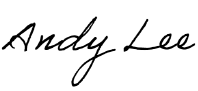 Andy Lee